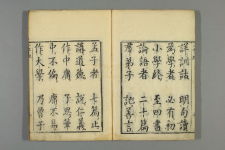 詳訓詁　明句讀
為學者　必有初
小學終　至四書
論語者　二十篇
羣弟子　記善言
孟子者　七篇止
講道德　說仁義
作中庸　子思筆
中不偏　庸不易
作大學　乃曾子